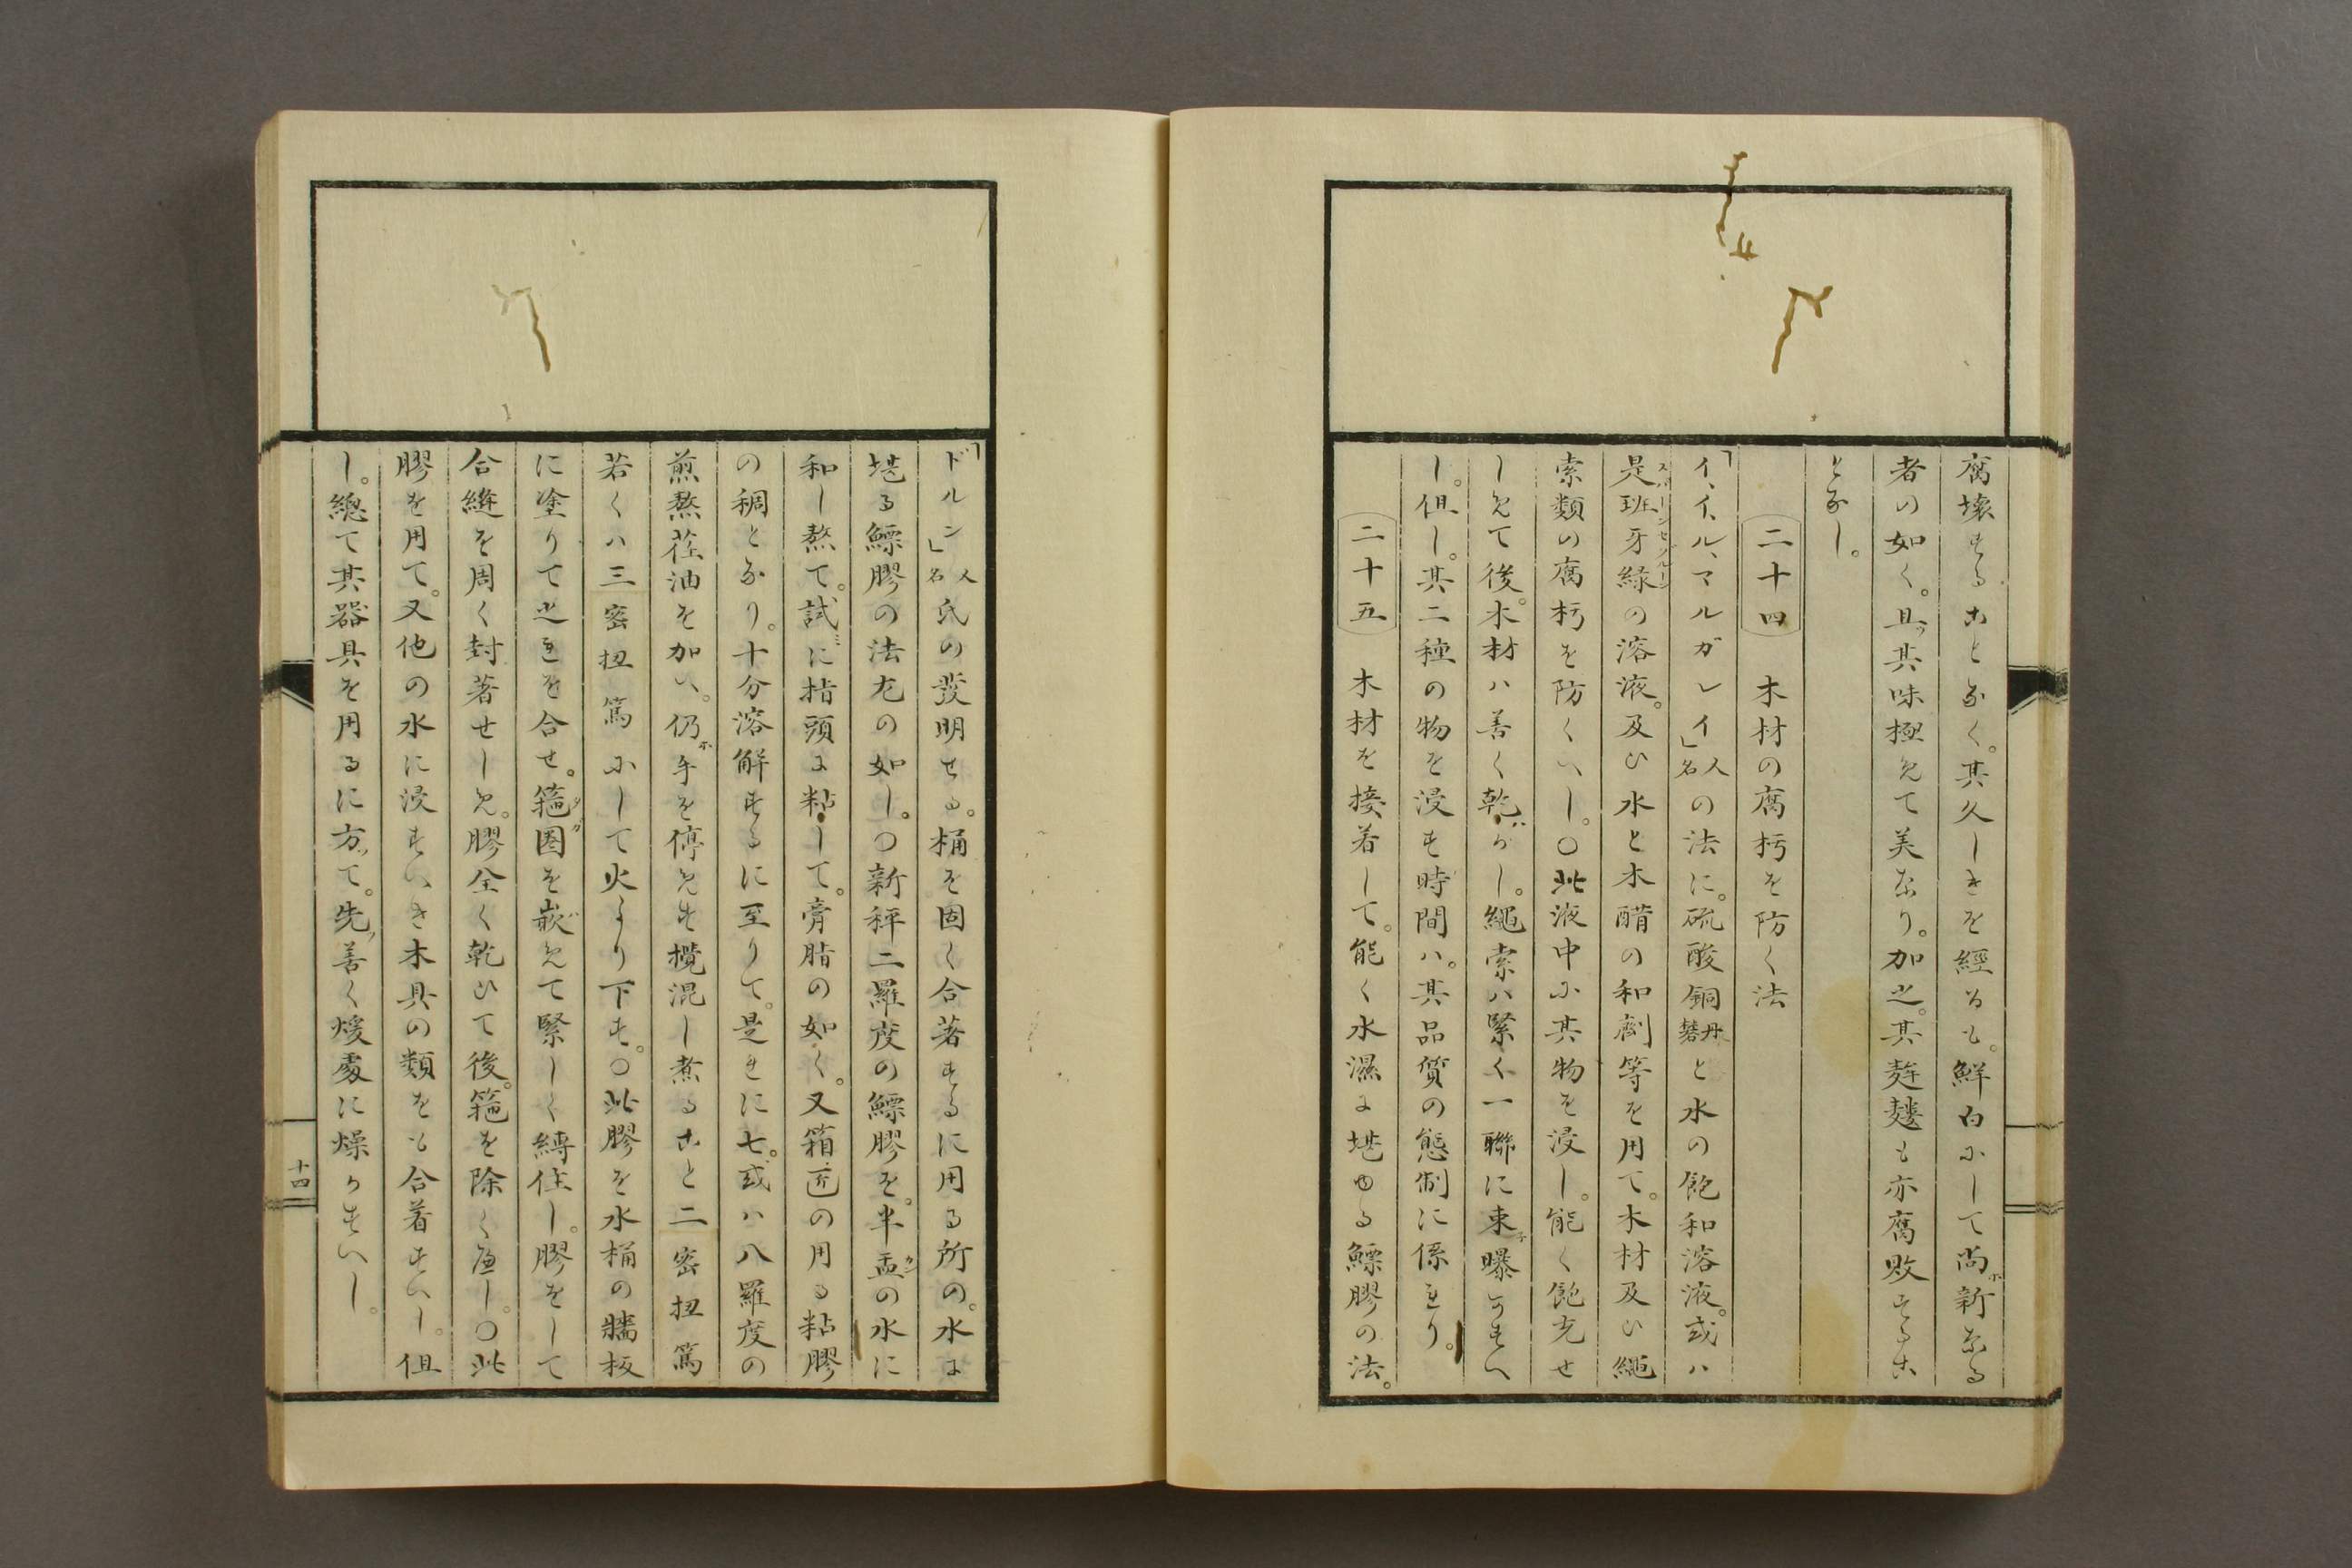 腐壊することなく。其久しきを經るも。鮮白にして尚ホ新なる
者の如く。且ツ其味極めて美なり。加之。其麰麹も亦腐敗するこ
となし。
二十四　木材の腐朽を防く法
「イ、イ、ル、マルガレイ」人名の法に。硫酸銅丹礬と水の飽和溶液。或ハ
是班牙緑スパーンセグルーンの溶液。及ひ水と木醋の和劑等を用て。木材及ひ繩
索類の腐朽を防くへし。〇此液中に其物を浸し。能く飽充せ
しめて後。木材ハ善く乾バかし。繩索ハ緊く一聯に束子曝すへ
し。但し。其二種の物を浸す時間ハ。其品質の態制に係れり。
二十五　木材を接着して。能く水濕に堪ゆる鰾膠の法。
「ドルン」人名氏の發明せる。桶を固く合著するに用る所の。水に
堪る鰾膠の法左の如し。〇新秤二羅度の鰾膠を。半盂カンの水に
和し熬て。試ミに指頭に粘して。膏脂の如く。又箱匠の用る粘膠
の稠となり。十分溶解するに至りて。是れに七。或ハ八羅度の
煎熬荏油を加へ。仍ホ手を停めす攪混し煮ること二密扭篤
若くハ三密扭篤にして火より下す。〇此膠を水桶の牆板
に塗りて之れを合せ。箍圏タガを嵌めて緊しく縛住し。膠をして
合縫を周く封著せしめ。膠全く乾ひて後。箍を除く應し。〇此
膠を用て。又他の水に浸すへき木具の類をも合着すへし。但
し。總て其器具を用るに方ツて。先ツ善く煖處に燥かすへし。
十四